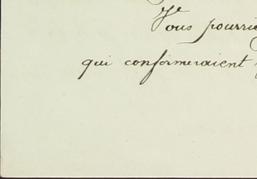 Vous pourri
qui conformeraient